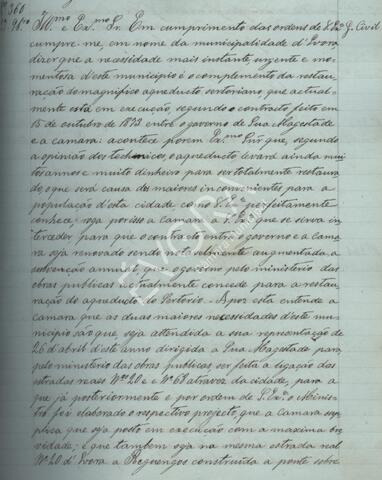 Nº 360
Illmo e Exmo Sr. Em cumprimento das ordens de V. Exa G. Civil
cumpre-me, em nome da municipalidade d'Evora
dizer que a necessidade mais instante, urgente e mo-
mentosa d'este municipio é o complemento da restau-
ração do magnifico aqueducto sertoriano, que actual-
mente está em execução segundo o contracto feito em
15 de outubro de 1873 entre o governo de Sua Magestade
e a camara: acontece porem Exmo Snr que, segundo
a opinião dos technicos, o aqueducto levará ainda mui-
tos annos e muito dinheiro para ser totalmente restaura-
do, o que será causa dos maiores inconvenientes para a
população d'esta cidade como V. Exa perfeitamente
conhece; roga por isso a camara a V. Exa que se sirva in-
terceder para que o contracto entre o governo e a cama-
ra seja renovado sendo notavelmente augmentada a
subvenção annual, que o governo pelo ministerio das
obras publicas actualmente concede para a restau-
ração do aqueducto do Sertorio. Apoz esta entende a
camara que as duas maiores necessidades d'este mu-
nicipio são que seja attendida a sua representação de
26 d'abril d'este anno dirigida a Sua Magestade para
pelo ministerio das obras publicas ser feita a ligação das
estradas reaes Nº 20 e Nº 68 atravez da cidade, para a
que já posteriormente e por ordem de S. Exa o Minis-
tro foi elaborado o respectivo projecto, que a camara sup-
plica que seja posto em execução com a maxima bre-
vidade; e que tambem seja na mesma estrada real
Nº 20 d'Evora a Reguengos construida a ponte sobre